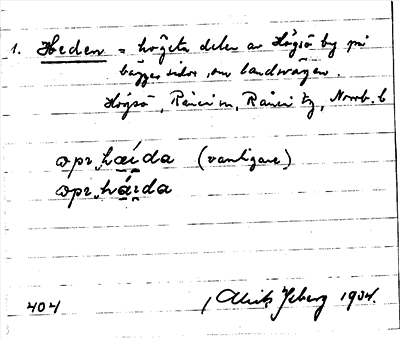 1. Heden = högsta delen av Högsö by på
bägge sidor om landsvägen.
Högsö, Råneå sn, Råneå tg, Norrb. l
opr, hæida (vanligare)
opr, háida
404 Ulrik Isberg 1934.